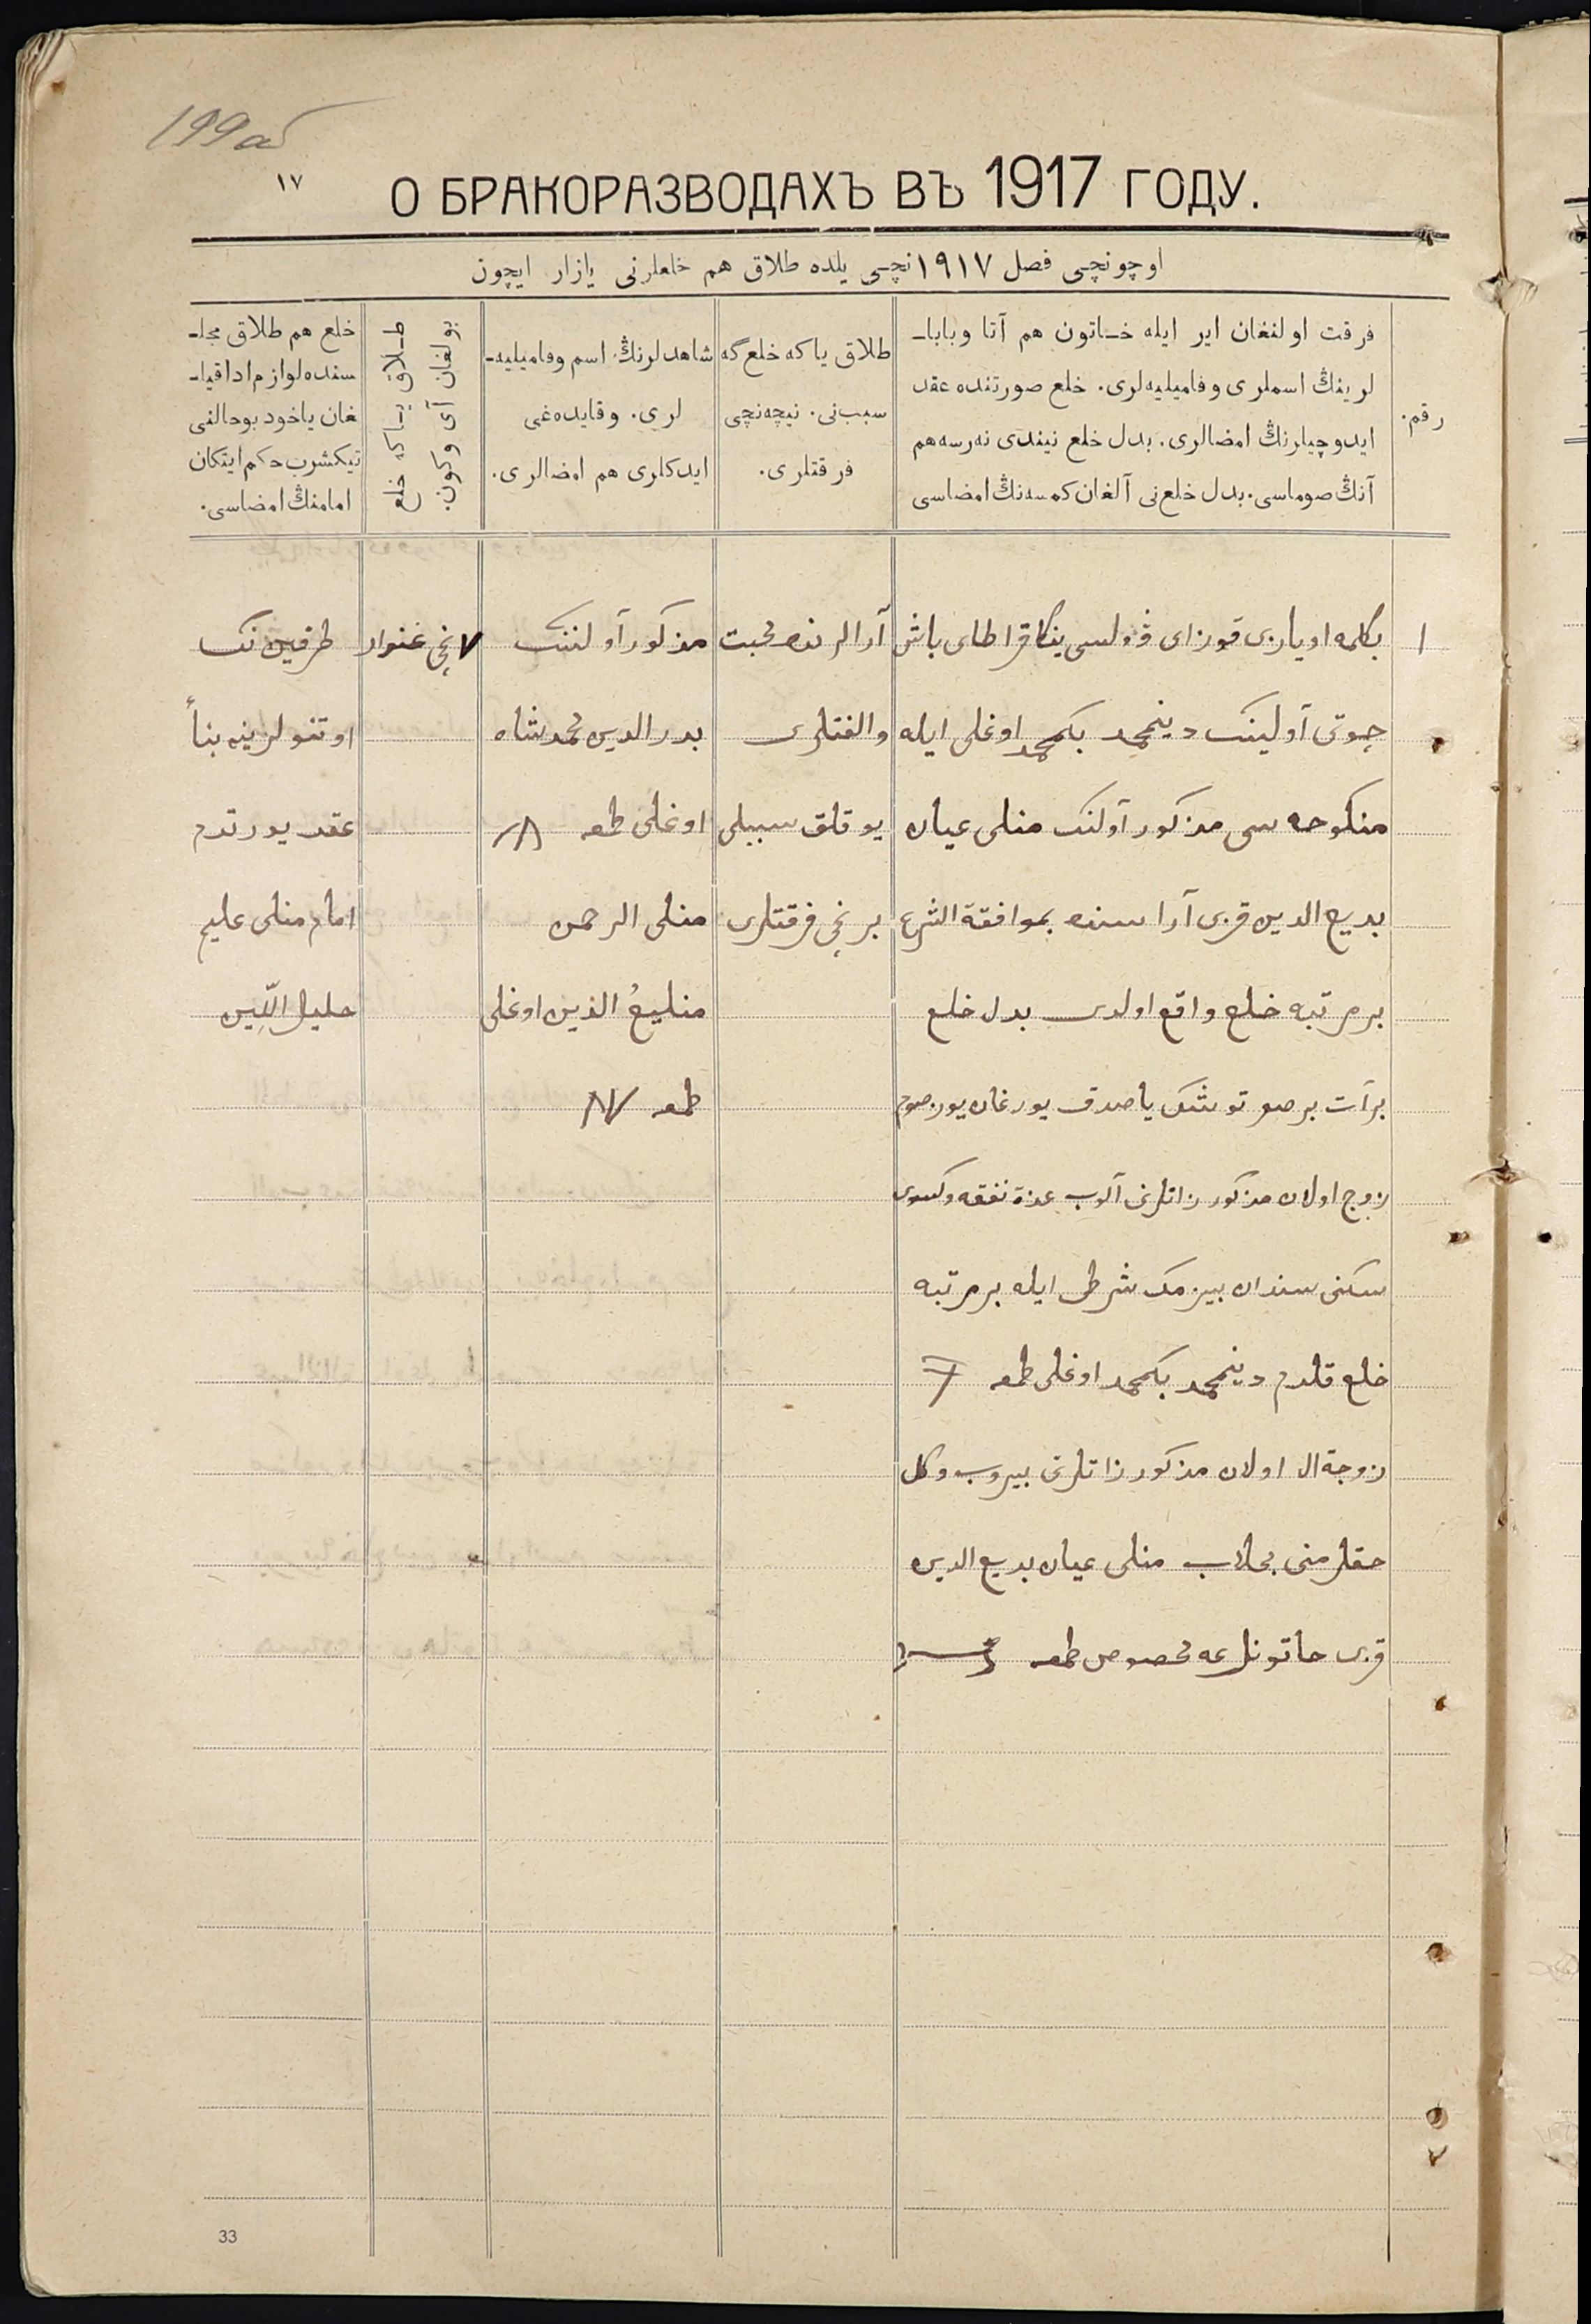 199об
١٧
О БРАКОРАЗВОДАХЪ ВЪ 1917 ГОДУ.
اوچونچی فصل ١٩١٧نچی یلده طلاق هم خلعلرنی یازار ایچون
رقم.
فرقت اولنغان ایر ایله خـاتون هم آتا وبابا۔
لرینڭ اسملری و فامیلیه‌لری. خلع صورتنده عقد
ایدوچیلرنڭ امضالری. بدل خلع نیندی نه‌رسه هم
آنڭ صوماسی. بدل خلع‌نی آلغان کمسه‌نڭ امضاسی
طلاق یاکه خلع گه
سبب‌نی. نیچه‌نچی
فرقتلری.
شاهدلرنڭ اسم وفامیلیه۔
لری. وقایده‌غی
ایدکلری هم امضالری.
طـلاق یـاکه خلع
بولغان آی وکون.
خلع هم طلاق مجلـ
سنده لوازم ادا قیلـ
غان یاخود بوحالنی
تیکشرب حکم ایتکان
امامنڭ امضاسی.
١
بکلمه اویازی قوزای ڤولسی ینکا قراطای باش
چوتی آولینک دینمحمد بکمحمد اوغلی ایله
منکوحه سی مذکور آولنک منلی عیان
بدیع الدین قزی آراسنده بموافقة الشرع
برمرتبه خلع واقع اولدی بدل خلع
برآت بر صر توشک یاصدق یورغان یوز صوم
زوج اولان مذکور زاتلرنی آلوب عدة نفقه وکسوی
سکنی سندان بیزمک شرطی ایله برمرتبه
خلع قلدم دینمحمد بکمحمد اوغلی طمغه
زوجة ال اولان مذکور زاتلرنی بیروب وکل
حقلرمنی منلی عیان بدیع الدین
قزی خاتونلرغه مخصوص طمغه
آرالرنده محبت
والفتلری
یوقلق سببلی
برنچی فرقتلری
مذکور آولننک
بدرالدین محمدشاه
اوغلی طمغه
منلی الرحمن
اوغلی
طمغه
٧ نچی غنوار
طرفین نک
اوتنولرینه بناً
عقد یورتدم
امام منلی علیم
33